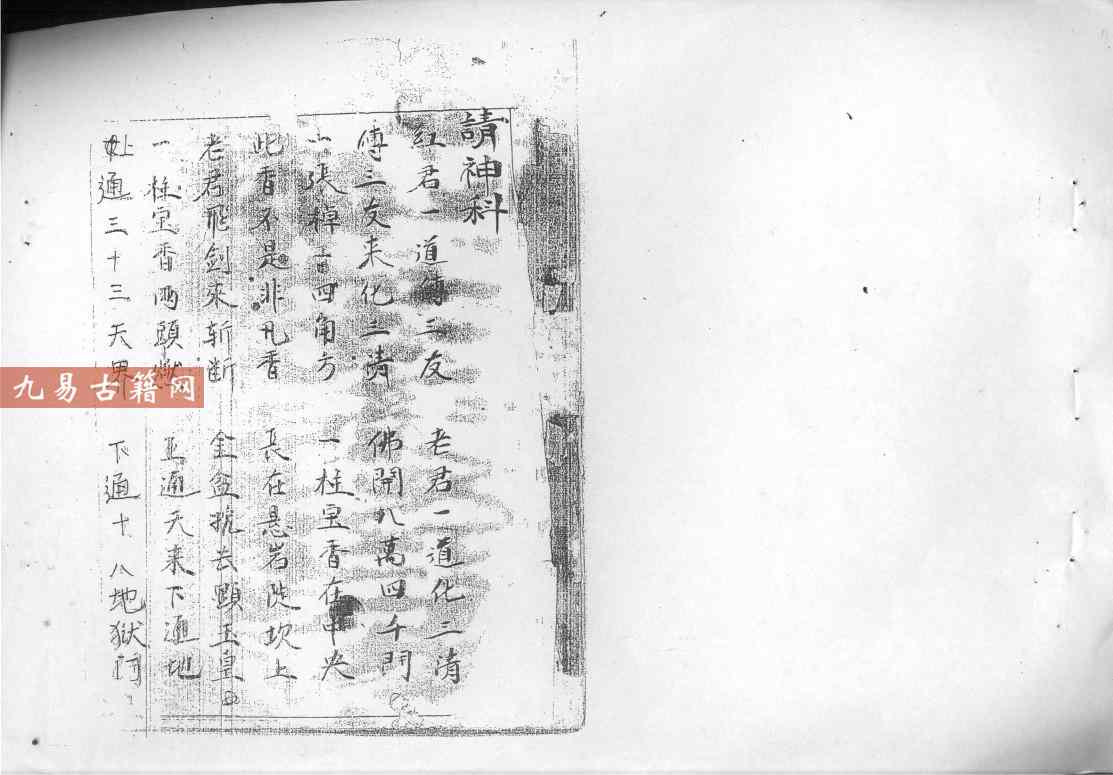 請神科
红君一道傳三友 老君一道化三清
傳三友来化三清 佛開八萬四千門
一張棹子四角方 一柱宝香在中央
此香不是非凡香 長在悬岩陡坎上
老君飛劍來斩断 金盆抗去顕玉皇
一柱宝香両頭燃 上通天来下通地
上通三十三天界 下通十八地獄門
九易古籍网